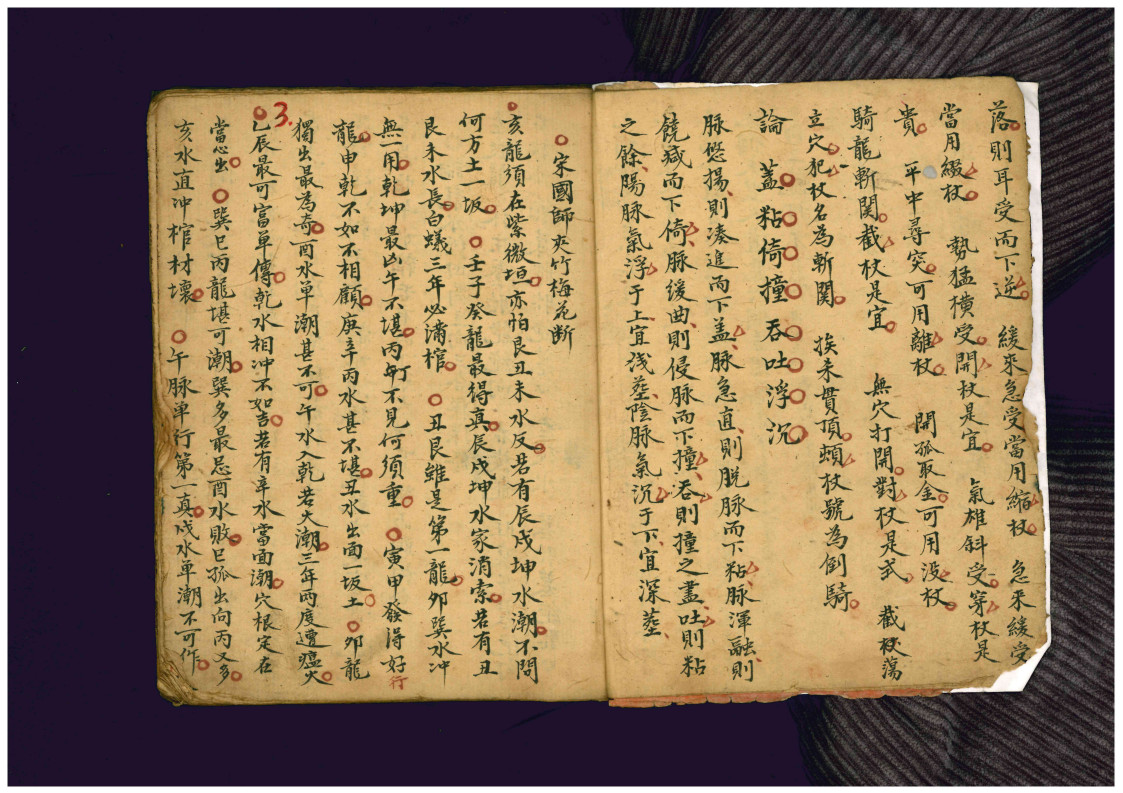 落則耳受而下逆　緩來急受當用縮杖　急來緩受
當用綴杖　勢猛橫受開杖是宜　氣雄斜受穿杖是
貴　平中尋突可用離杖　開孤取金可用沒杖
騎龍斬関截杖是宜　無穴打開對杖是式　截杖蕩
立穴犯杖名為斬関　挨來貫頂頓杖號為倒騎
論　蓋粘倚撞吞吐浮沉
脉悠揚則凑進而下盖脉急直則脱脉而下粘脉渾融則
饒减而下倚脉緩曲則侵脉而下撞吞則撞之盡吐則粘
之餘陽脉氣浮于上宜浅塟陰脉氣沉于下宜深塟
宋國師夾竹梅花断
亥龍須在紫微垣亦怕艮丑未水反若有辰戌坤水潮不問
何方土一坂　壬子癸龍最得真辰戌坤水家消索若有丑
艮未水長白蟻三年必滿棺　丑艮雖是第一龍夘巽水冲
無一用乾坤最凶午不堪丙丁每不見何須重　寅甲發得好行
龍申乾不如不相顧庚辛丙水甚不堪丑水出面一坂土　夘龍
獨出最為奇酉水单潮甚不可午水入乾若大潮三年两度遭瘟火
3.
乙辰最可富单傳乾水相冲不如吉若有辛水當面潮穴根定在
當心出　巽巳丙龍堪可潮巽多最忌酉水敗巳孤出向丙又多
亥水直冲棺材壞　午脉单行第一真戌水单潮不可作